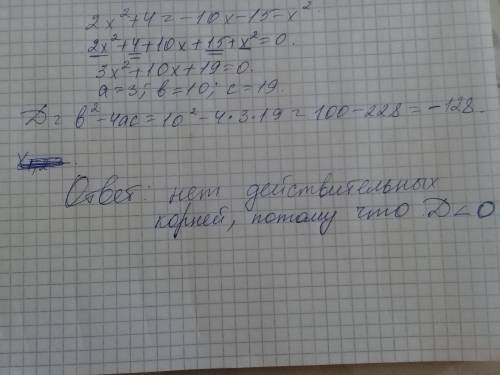 2x²+4=-10x-15-x²
2x²+4+10x+15+x²=0.
3x²+10x+19=0.
a=3; в=10; c=19.
D= в²-4ac=10²-4•3•19=100-228=-128.
Ответ: нет действительных
корней, потому что D<0